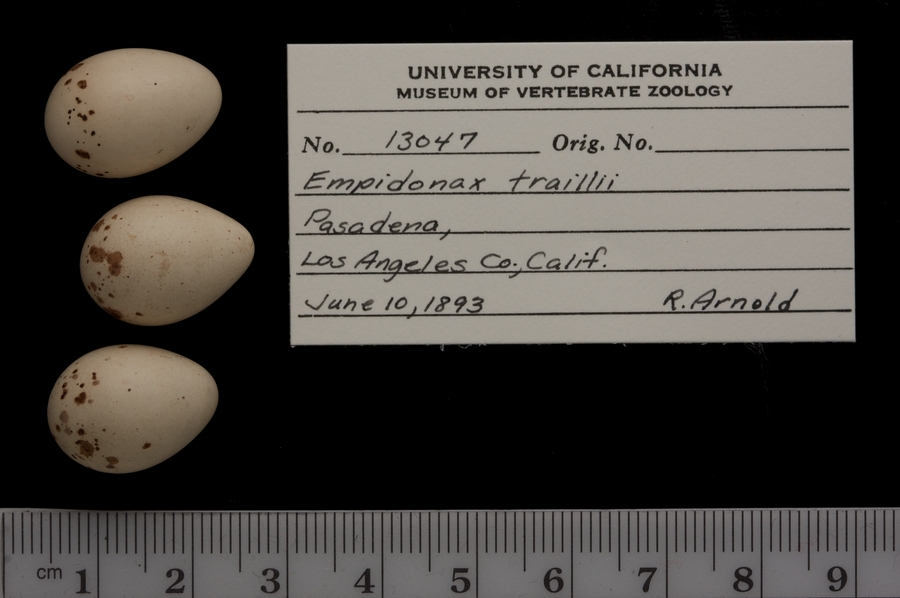 UNIVERSITY OF CALIFORNIA
MUSEUM OF VERTEBRATE ZOOLOGY
No. 13047 Orig. No.
Empidonax traillii
Pasadena,
Los Angeles Co., Calif.
June 10, 1893 R. Arnold
cm 1 2 3 4 5 6 7 8 9